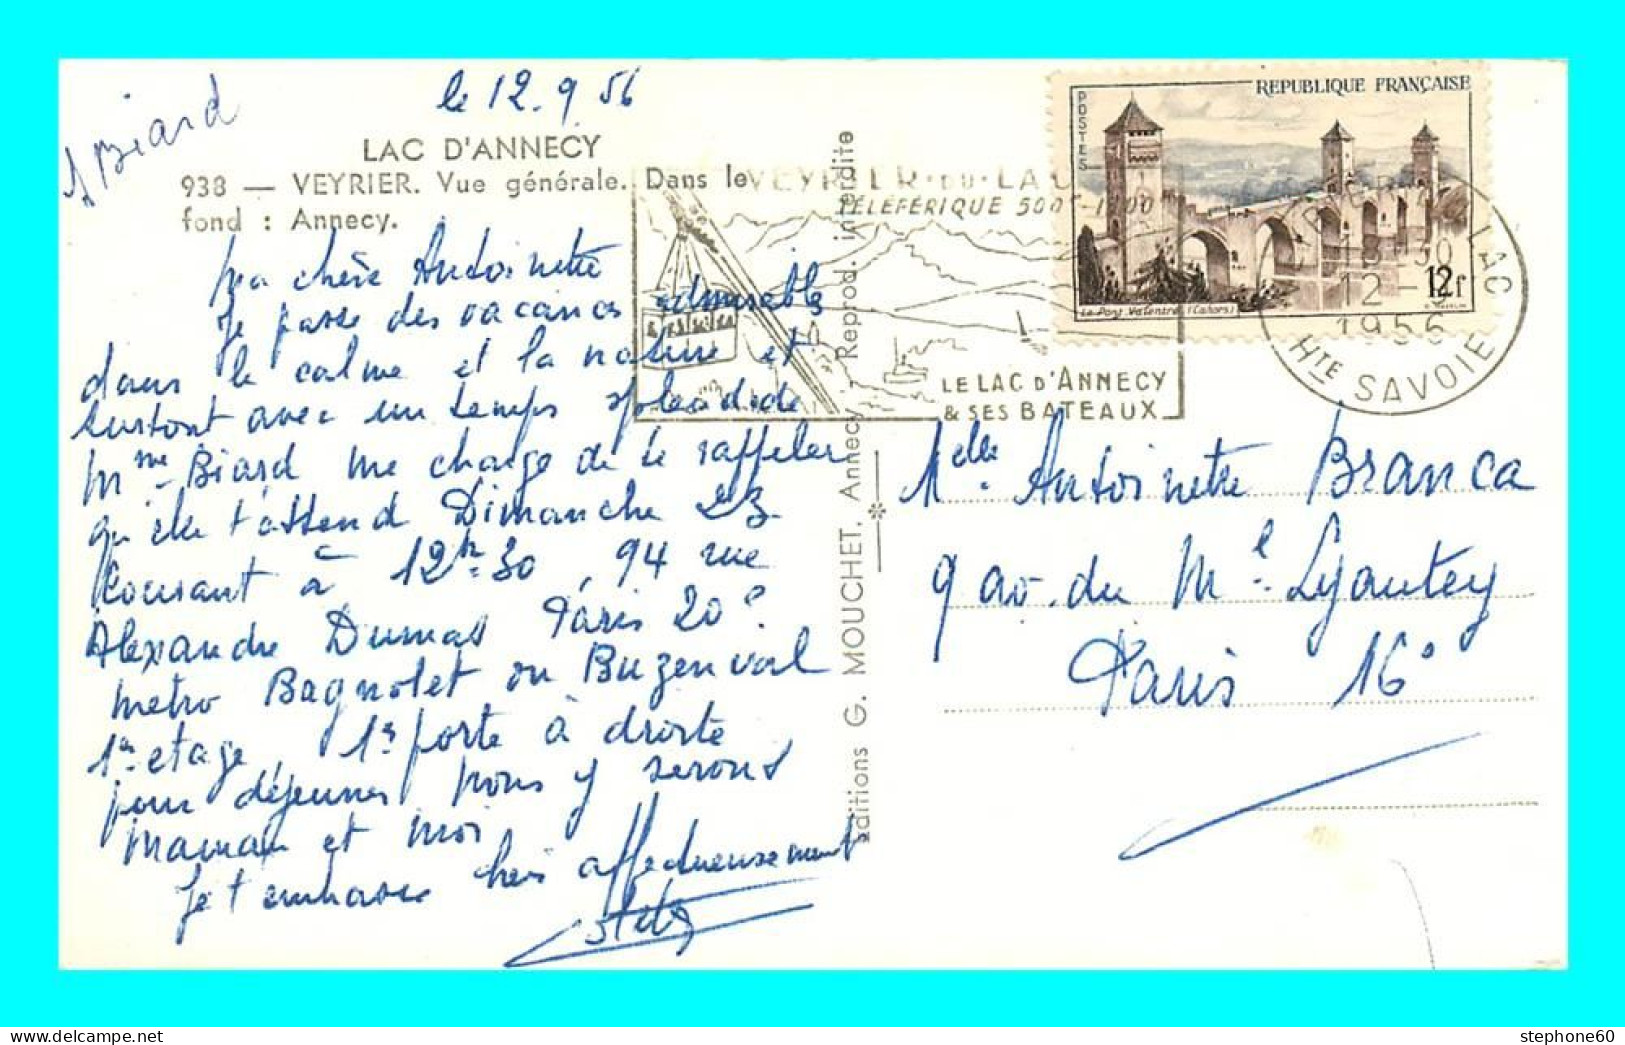 J Biard
le 12.9.56
LAC D'ANNECY
938 — VEYRIER. Vue générale. Dans le
fond : Annecy.
Ma chère Antoinette
Je passe des vacances admirables
dans le calme et la nature et
surtout avec un temps splendide
Mme Biard me charge de te rappeler
qu'elle t'attend Dimanche 23
courant à 12h30, 94 rue
Alexandre Dumas Paris 20e.
metro Bagnolet ou Buzenval
1er etage, 1re porte à droite
pour déjeuner nous y serons
Maman et moi
Je t'embrasse chère affectueusement
Editions G. MOUCHET. Annecy - Reprod. interdite
VEYRIER-DU-LAC
TÉLÉFÉRIQUE 500-1
LE LAC D'ANNECY
& SES BATEAUX
REPUBLIQUE FRANÇAISE
POSTES
Le Pont Valentré (Cahors)
12f
LAC
12 - 9
1956
HTE SAVOIE
Melle Antoinette Branca
9 av. du Ml. Lyautey
Paris 16e
stephone60